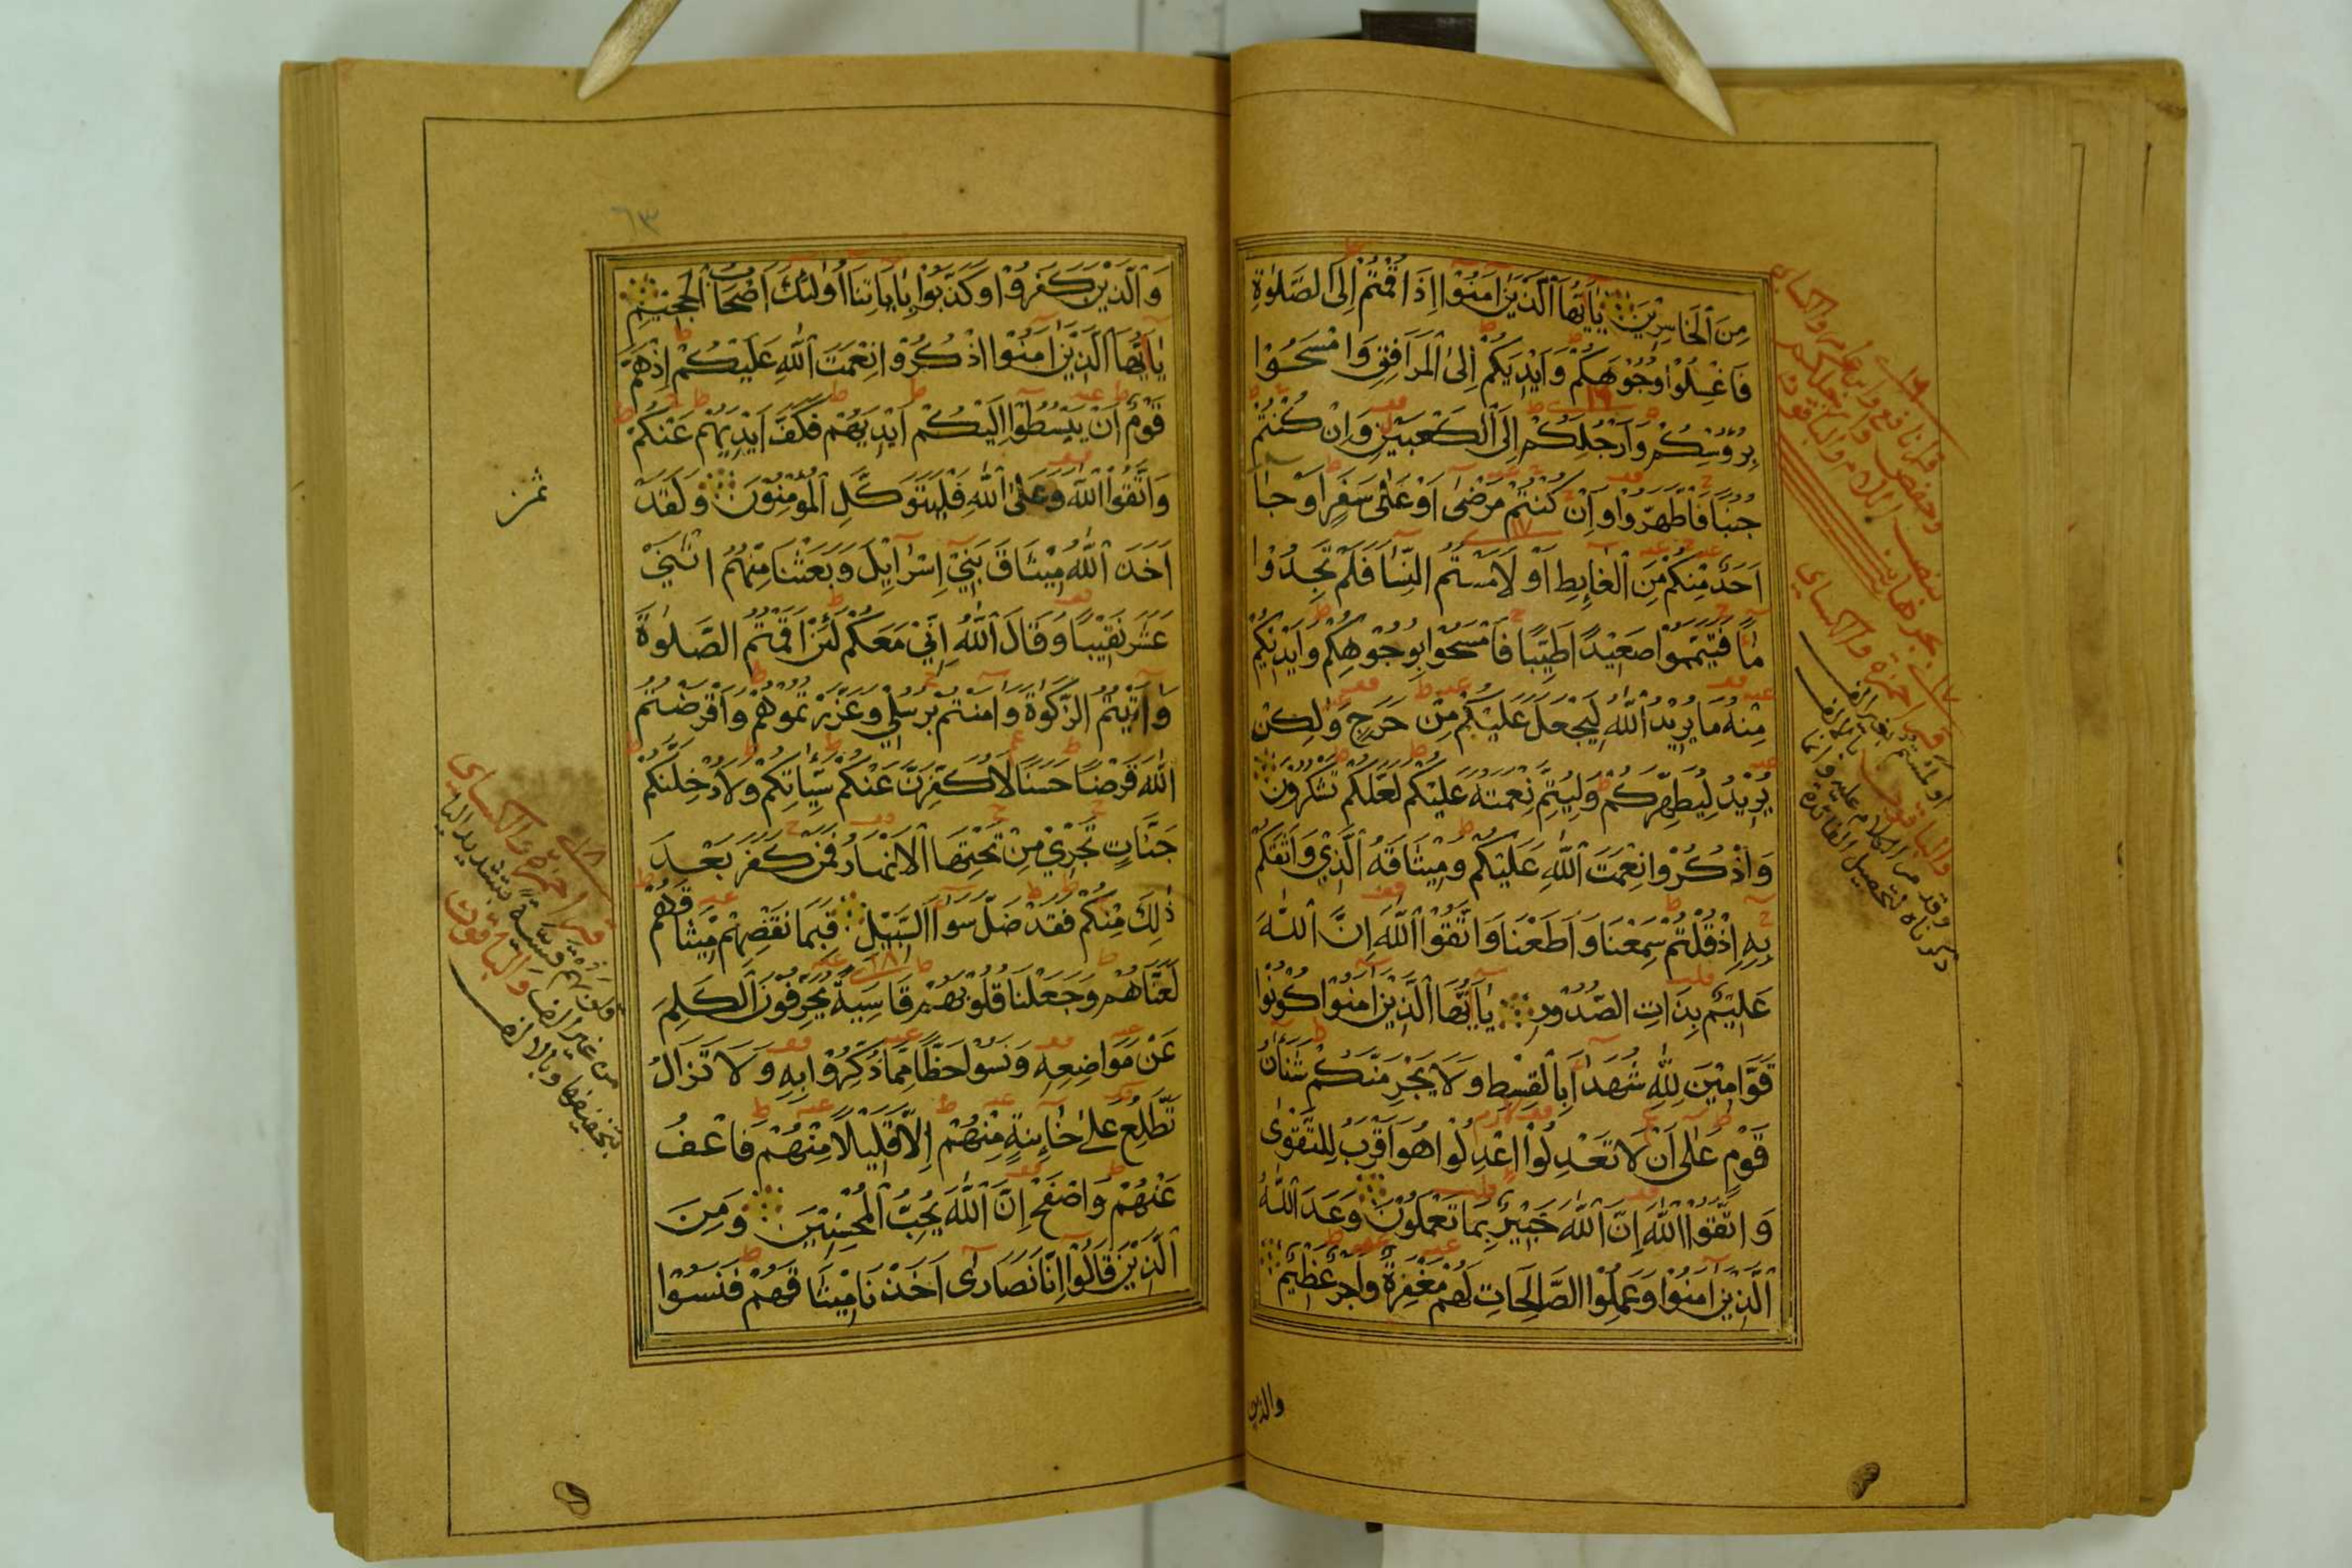 مِنَ ٱلْخَاسِرِيْنَ يٰٓاَيُّهَا ٱلَّذِيْنَ اٰمَنُوْٓا اِذَا قُمْتُمْ اِلَى ٱلصَّلٰوةِ
فَاغْسِلُوْا وُجُوْهَكُمْ وَاَيْدِيَكُمْ اِلَى ٱلْمَرَافِقِ وَامْسَحُوْا
بِرُؤُسِكُمْ وَاَرْجُلِكُمْ اِلَى ٱلْكَعْبَيْنِ وَاِنْ كُنْتُمْ
جُنُبًا فَاطَّهَّرُوْا وَاِنْ كُنْتُمْ مَرْضٰٓى اَوْ عَلٰى سَفَرٍ اَوْ جَآءَ
اَحَدٌ مِنْكُمْ مِنَ ٱلْغَآئِطِ اَوْ لَامَسْتُمُ النِّسَآءَ فَلَمْ تَجِدُوْا
مَآءً فَتَيَمَّمُوْا صَعِيْدًا طَيِّبًا فَامْسَحُوْا بِوُجُوْهِكُمْ وَاَيْدِيْكُمْ
مِنْهُ مَا يُرِيْدُ ٱللّٰهُ لِيَجْعَلَ عَلَيْكُمْ مِنْ حَرَجٍ وَلٰكِنْ
يُرِيْدُ لِيُطَهِّرَكُمْ وَلِيُتِمَّ نِعْمَتَهُ عَلَيْكُمْ لَعَلَّكُمْ تَشْكُرُوْنَ
وَاذْكُرُوْا نِعْمَتَ ٱللّٰهِ عَلَيْكُمْ وَمِيْثَاقَهُ ٱلَّذِيْ وَاثَقَكُمْ
بِهٖٓ اِذْ قُلْتُمْ سَمِعْنَا وَاَطَعْنَا وَاتَّقُوْا ٱللّٰهَ اِنَّ ٱللّٰهَ
عَلِيْمٌ بِذَاتِ الصُّدُوْرِ يٰٓاَيُّهَا ٱلَّذِيْنَ اٰمَنُوْا كُوْنُوْا
قَوَّامِيْنَ لِلّٰهِ شُهَدَآءَ بِالْقِسْطِ وَلَا يَجْرِمَنَّكُمْ شَنَاٰنُ
قَوْمٍ عَلٰٓى اَنْ لَا تَعْدِلُوْا اعْدِلُوْا هُوَ اَقْرَبُ لِلتَّقْوٰى
وَاتَّقُوْا ٱللّٰهَ اِنَّ ٱللّٰهَ خَبِيْرٌ بِمَا تَعْمَلُوْنَ وَعَدَ ٱللّٰهُ
ٱلَّذِيْنَ اٰمَنُوْا وَعَمِلُوْا الصَّالِحَاتِ لَهُمْ مَغْفِرَةٌ وَاَجْرٌ عَظِيْمٌ
والذين
٦٣
وَٱلَّذِيْنَ كَفَرُوْا وَكَذَّبُوْا بِاٰيَاتِنَآ اُولٰٓئِكَ اَصْحَابُ ٱلْجَحِيْمِ
يٰٓاَيُّهَا ٱلَّذِيْنَ اٰمَنُوْا اذْكُرُوْا نِعْمَتَ ٱللّٰهِ عَلَيْكُمْ اِذْ هَمَّ
قَوْمٌ اَنْ يَبْسُطُوْٓا اِلَيْكُمْ اَيْدِيَهُمْ فَكَفَّ اَيْدِيَهُمْ عَنْكُمْ
وَاتَّقُوْا ٱللّٰهَ وَعَلَى ٱللّٰهِ فَلْيَتَوَكَّلِ ٱلْمُؤْمِنُوْنَ وَلَقَدْ
اَخَذَ ٱللّٰهُ مِيْثَاقَ بَنِيْٓ اِسْرَآئِيْلَ وَبَعَثْنَا مِنْهُمُ اثْنَيْ
عَشَرَ نَقِيْبًا وَقَالَ ٱللّٰهُ اِنِّيْ مَعَكُمْ لَئِنْ اَقَمْتُمُ الصَّلٰوةَ
وَاٰتَيْتُمُ الزَّكٰوةَ وَاٰمَنْتُمْ بِرُسُلِيْ وَعَزَّرْتُمُوْهُمْ وَاَقْرَضْتُمُ
ٱللّٰهَ قَرْضًا حَسَنًا لَاُكَفِّرَنَّ عَنْكُمْ سَيِّاٰتِكُمْ وَلَاُدْخِلَنَّكُمْ
جَنَّاتٍ تَجْرِيْ مِنْ تَحْتِهَا ٱلْاَنْهَارُ فَمَنْ كَفَرَ بَعْدَ
ذٰلِكَ مِنْكُمْ فَقَدْ ضَلَّ سَوَآءَ السَّبِيْلِ فَبِمَا نَقْضِهِمْ مِيْثَاقَهُمْ
لَعَنَّاهُمْ وَجَعَلْنَا قُلُوْبَهُمْ قَاسِيَةً يُحَرِّفُوْنَ ٱلْكَلِمَ
عَنْ مَوَاضِعِهٖ وَنَسُوْا حَظًّا مِمَّا ذُكِّرُوْا بِهٖ وَلَا تَزَالُ
تَطَّلِعُ عَلٰى خَآئِنَةٍ مِنْهُمْ اِلَّا قَلِيْلًا مِنْهُمْ فَاعْفُ
عَنْهُمْ وَاصْفَحْ اِنَّ ٱللّٰهَ يُحِبُّ ٱلْمُحْسِنِيْنَ وَمِنَ
ٱلَّذِيْنَ قَالُوْٓا اِنَّا نَصَارٰٓى اَخَذْنَا مِيْثَاقَهُمْ فَنَسُوْا